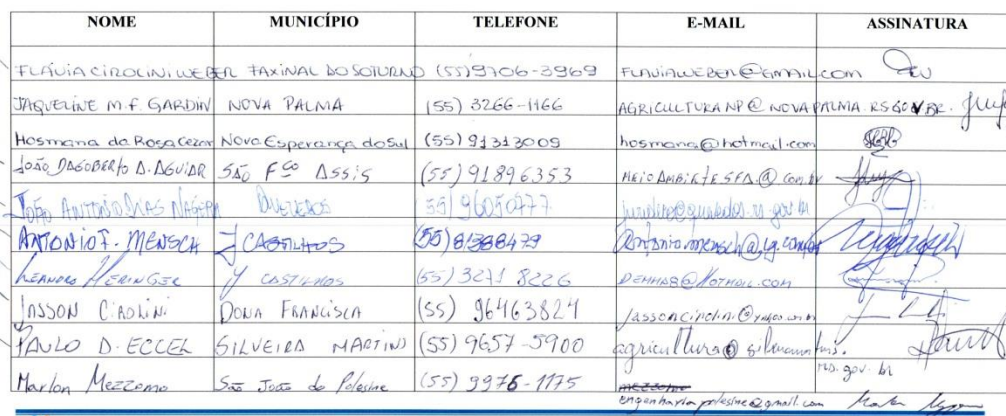 NOME MUNICÍPIO TELEFONE E-MAIL ASSINATURA
FLAVIA CIROLINI WEBER FAXINAL DO SOTURNO (55)9706-3969 FLAVIAWEBER@GMAIL.COM
JAQUELINE M.F. GARDIN NOVA PALMA (55) 3266-1166 AGRICULTURANP@NOVAPALMA.RS.GOV.BR.
Hosmana da Rosa Cezar Nova Esperança do Sul (55) 91313009 hosmana@hotmail.com
JOÃO DAGOBERTO D. AGUIAR SÃO Fco ASSIS (55) 91896353
JOÃO ANTONIO DIAS QUEVEDOS (55) 96050477
ANTONIO F. MENSCH J CASTILHOS (55)81388479 antonio.mensch@ig.com.br
LEANDRO HERINGER J CASTILHOS (55) 3271 8226 @HOTMAIL.COM
JASSON CIROLINI DONA FRANCISCA (55) 96463824 jassoncirolini@yahoo.com.br
PAULO D. ECCEL SILVEIRA MARTINS (55) 9657-5900 agricultura@silveiramartins.
rs.gov.br
Marlon Mezzomo São João do Polesine (55) 9976-1175 mezzomo
engenhariapolesine@gmail.com